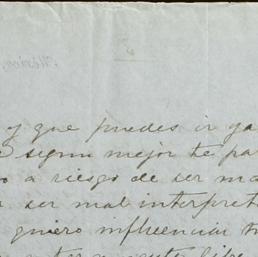 y que puedes ir ya
mejor te pa
a riesgo de ser ma
ser mal interpret
quiero influenciar tu